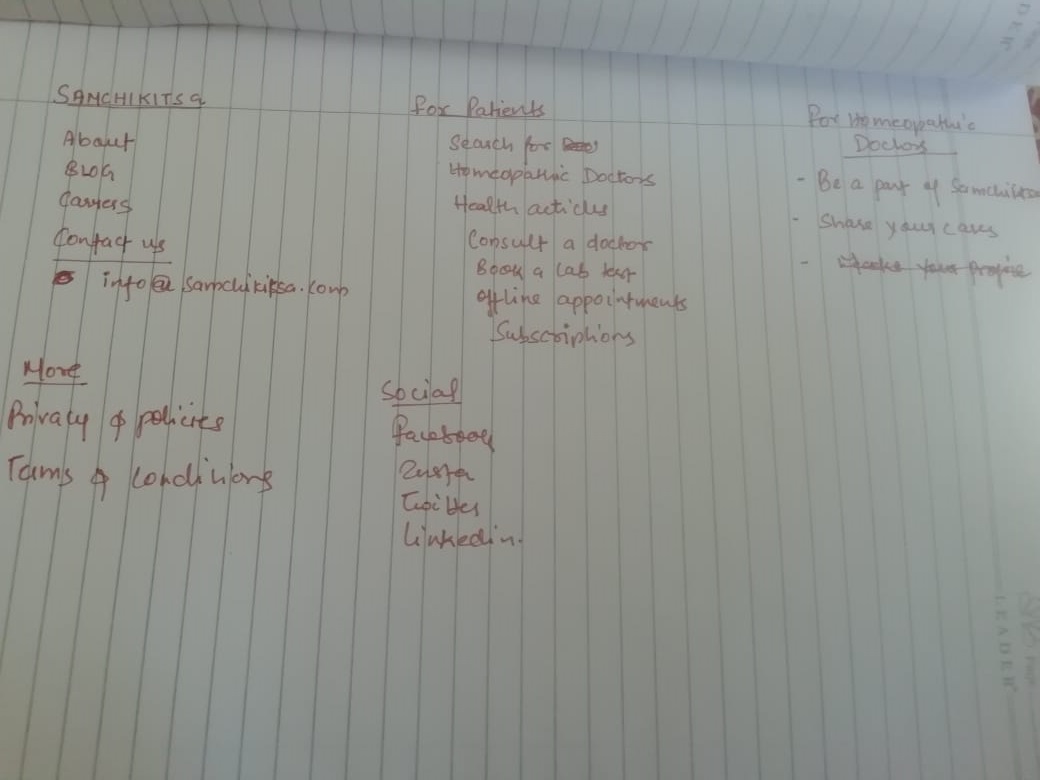 SAMCHIKITSA
About
BLOG
Carrers
Contact us
info@samchikitsa.com
For Patients
Search for
Homeopathic Doctors
Health articles
Consult a doctor
Book a Lab test
offline appointments
Subscriptions
For Homeopathic
Doctors
- Be a part of Samchikitsa
- Share your cases
- your profile
More
Privacy & policies
Terms & conditions
Social
Facebook
Insta
Twitter
Linkedin.
LEADER